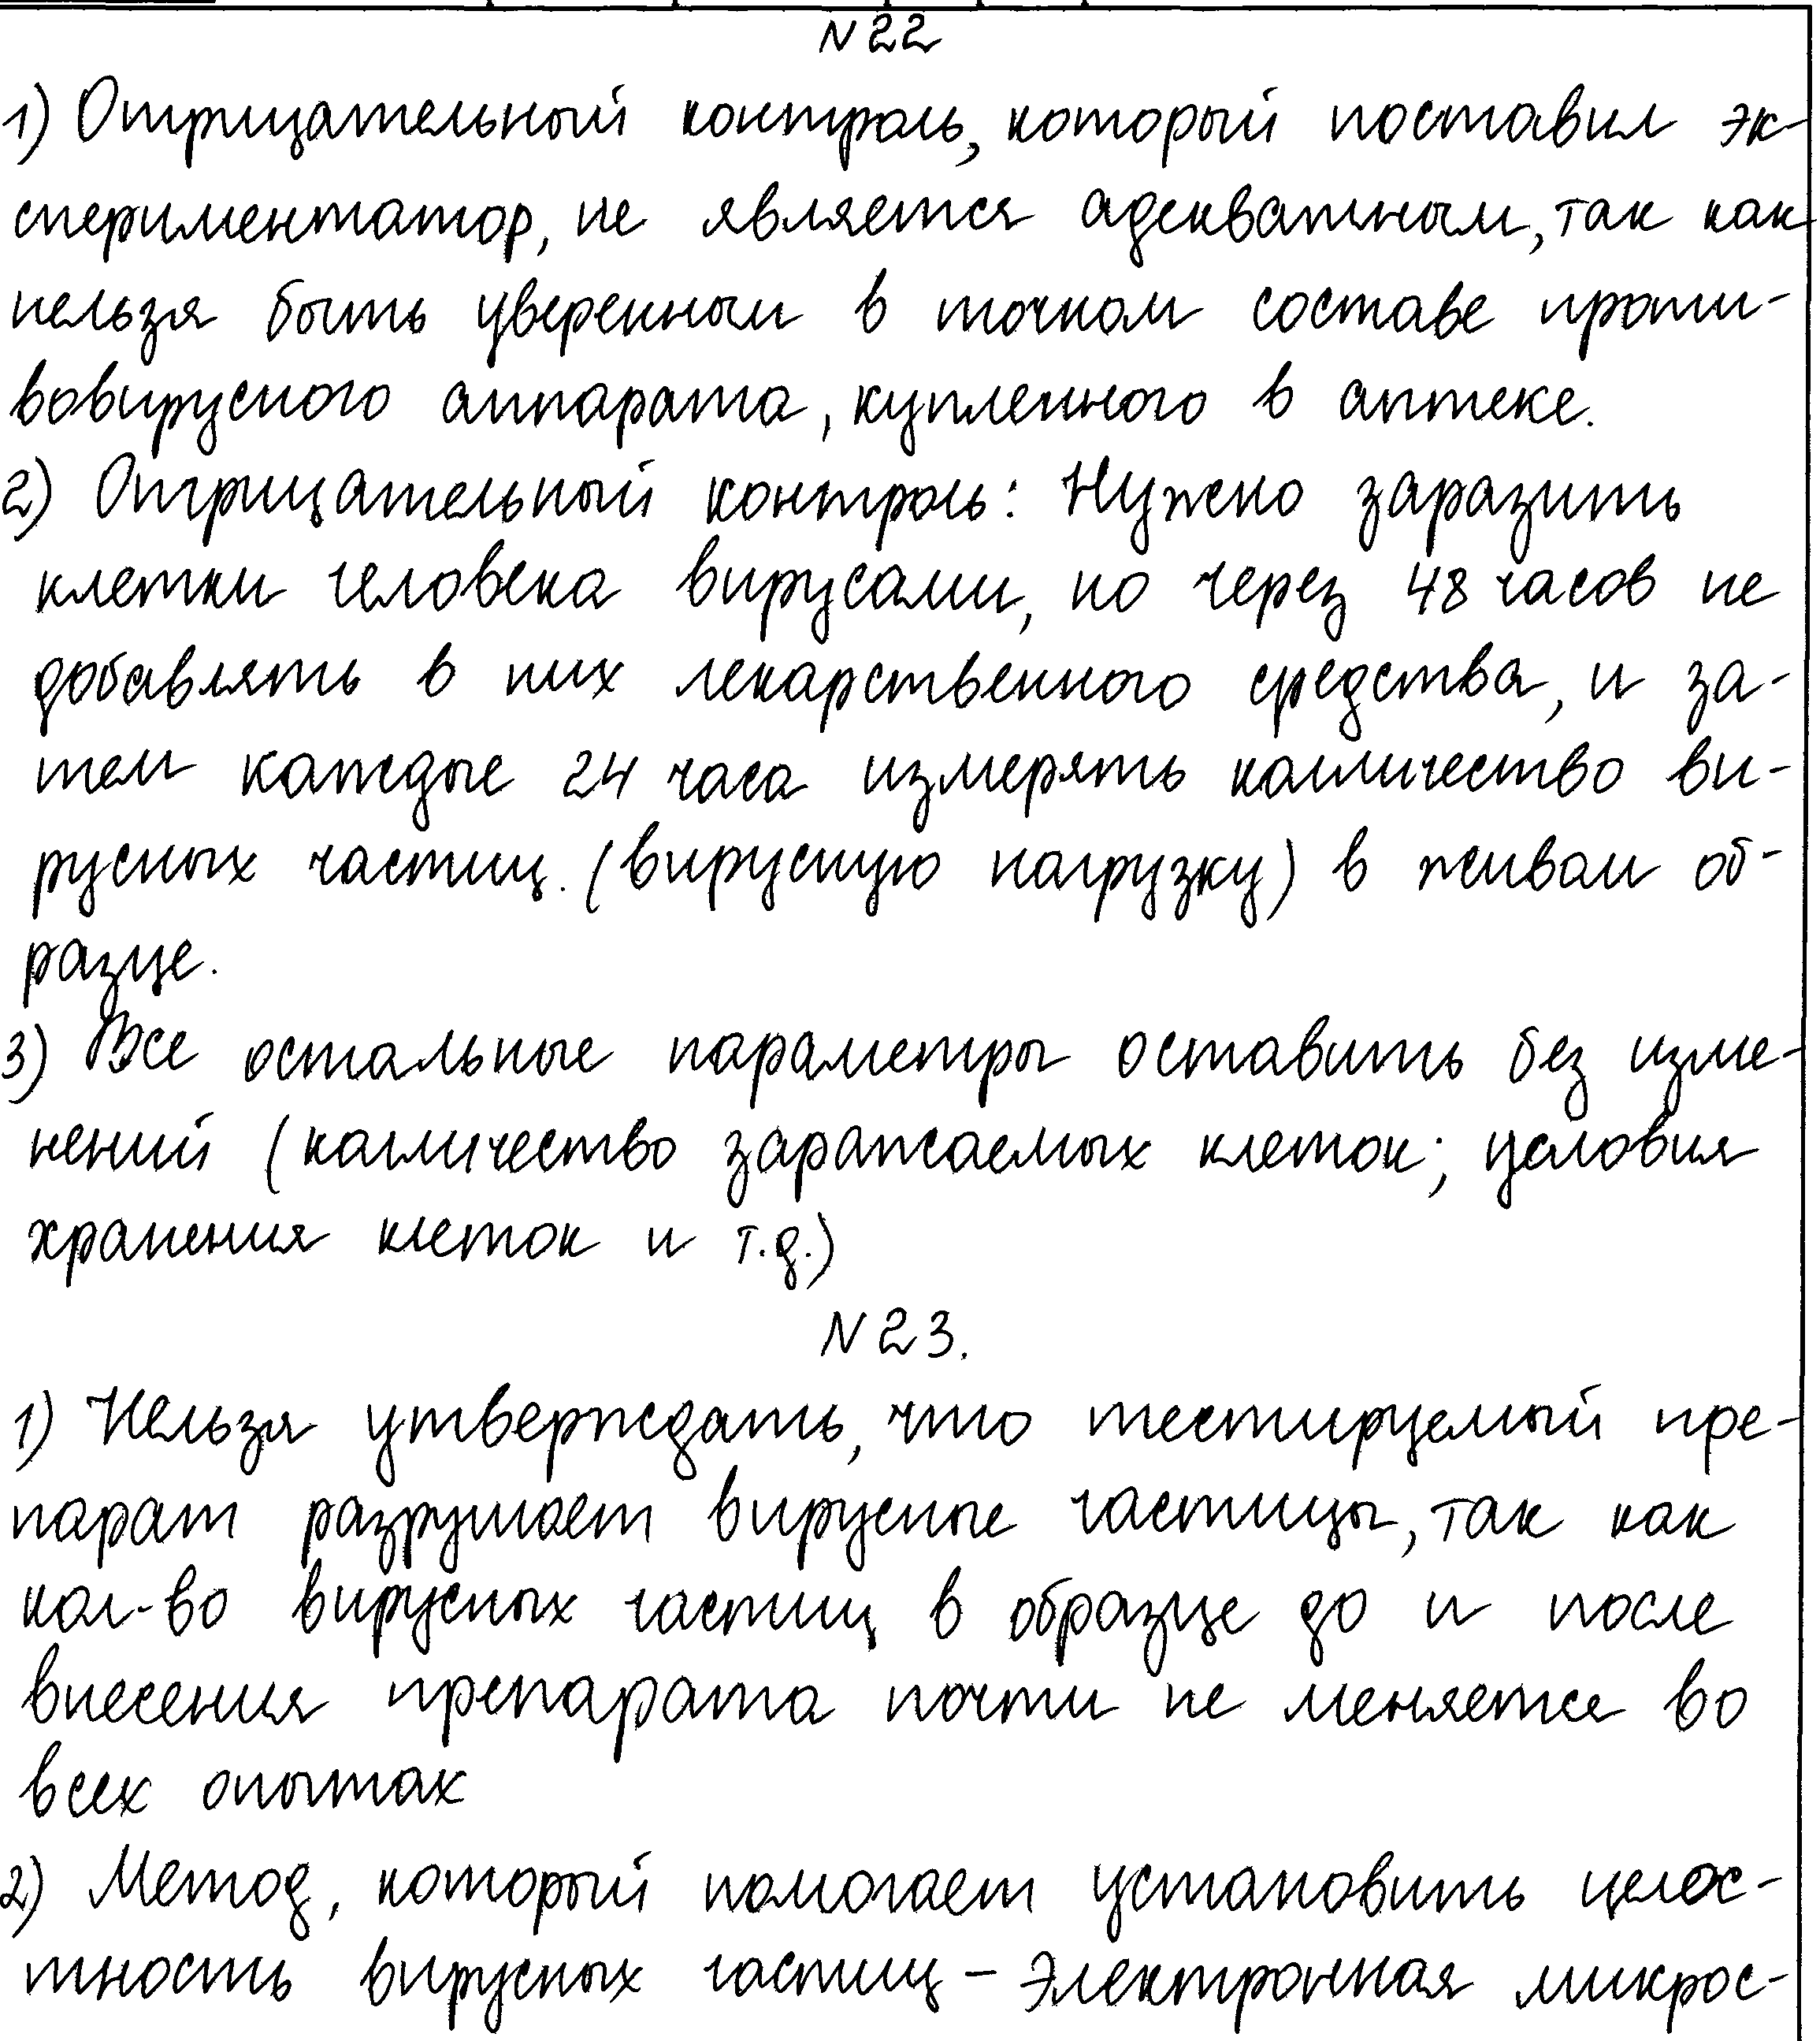 N22
1) Отрицательный контроль, который поставил эк-
спериментатор, не является адекватным, так как
нельзя быть уверенным в точном составе проти-
вовирусного аппарата, купленного в аптеке.
2) Отрицательный контроль: Нужно заразить
клетки человека вирусами, но через 48 часов не
добавлять в них лекарственного средства, и за-
тем каждые 24 часа измерять количество ви-
русных частиц. (вирусную нагрузку) в живом об-
разце.
3) Все остальные параметры оставить без изме-
нений (количество заражаемых клеток; условия
хранения клеток и т.д.)
N23.
1) Нельзя утверждать, что тестируемый пре-
парат разрушает вирусные частицы, так как
кол-во вирусных частиц в образце до и после
внесения препарата почти не меняется во
всех опытах
2) Метод, который помогает установить целос-
тность вирусных частиц – электронная микрос-